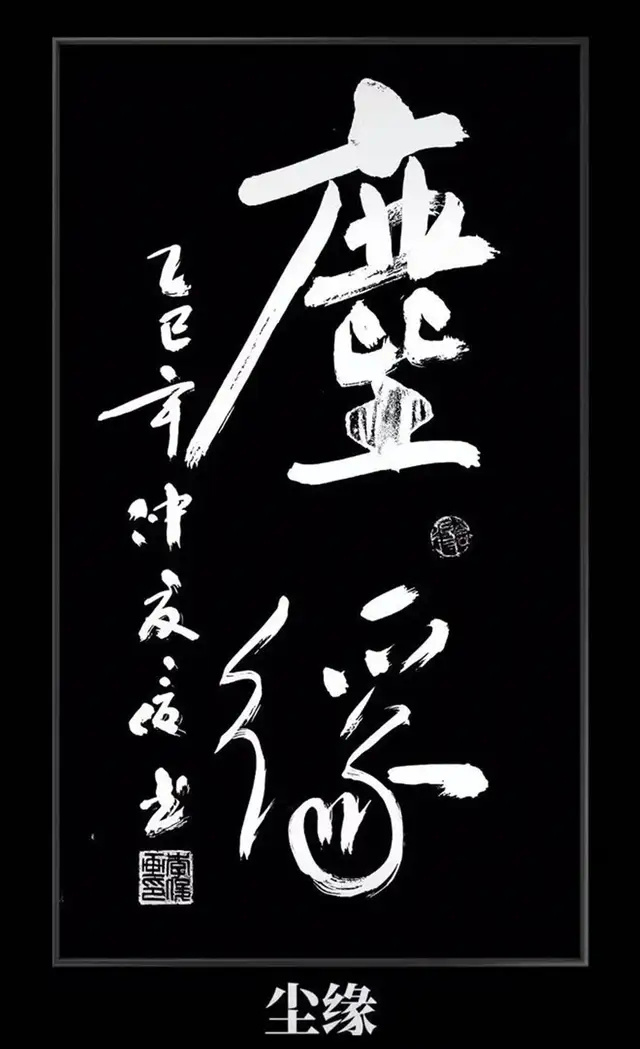 塵緣
乙巳年仲夏之夜书
尘缘